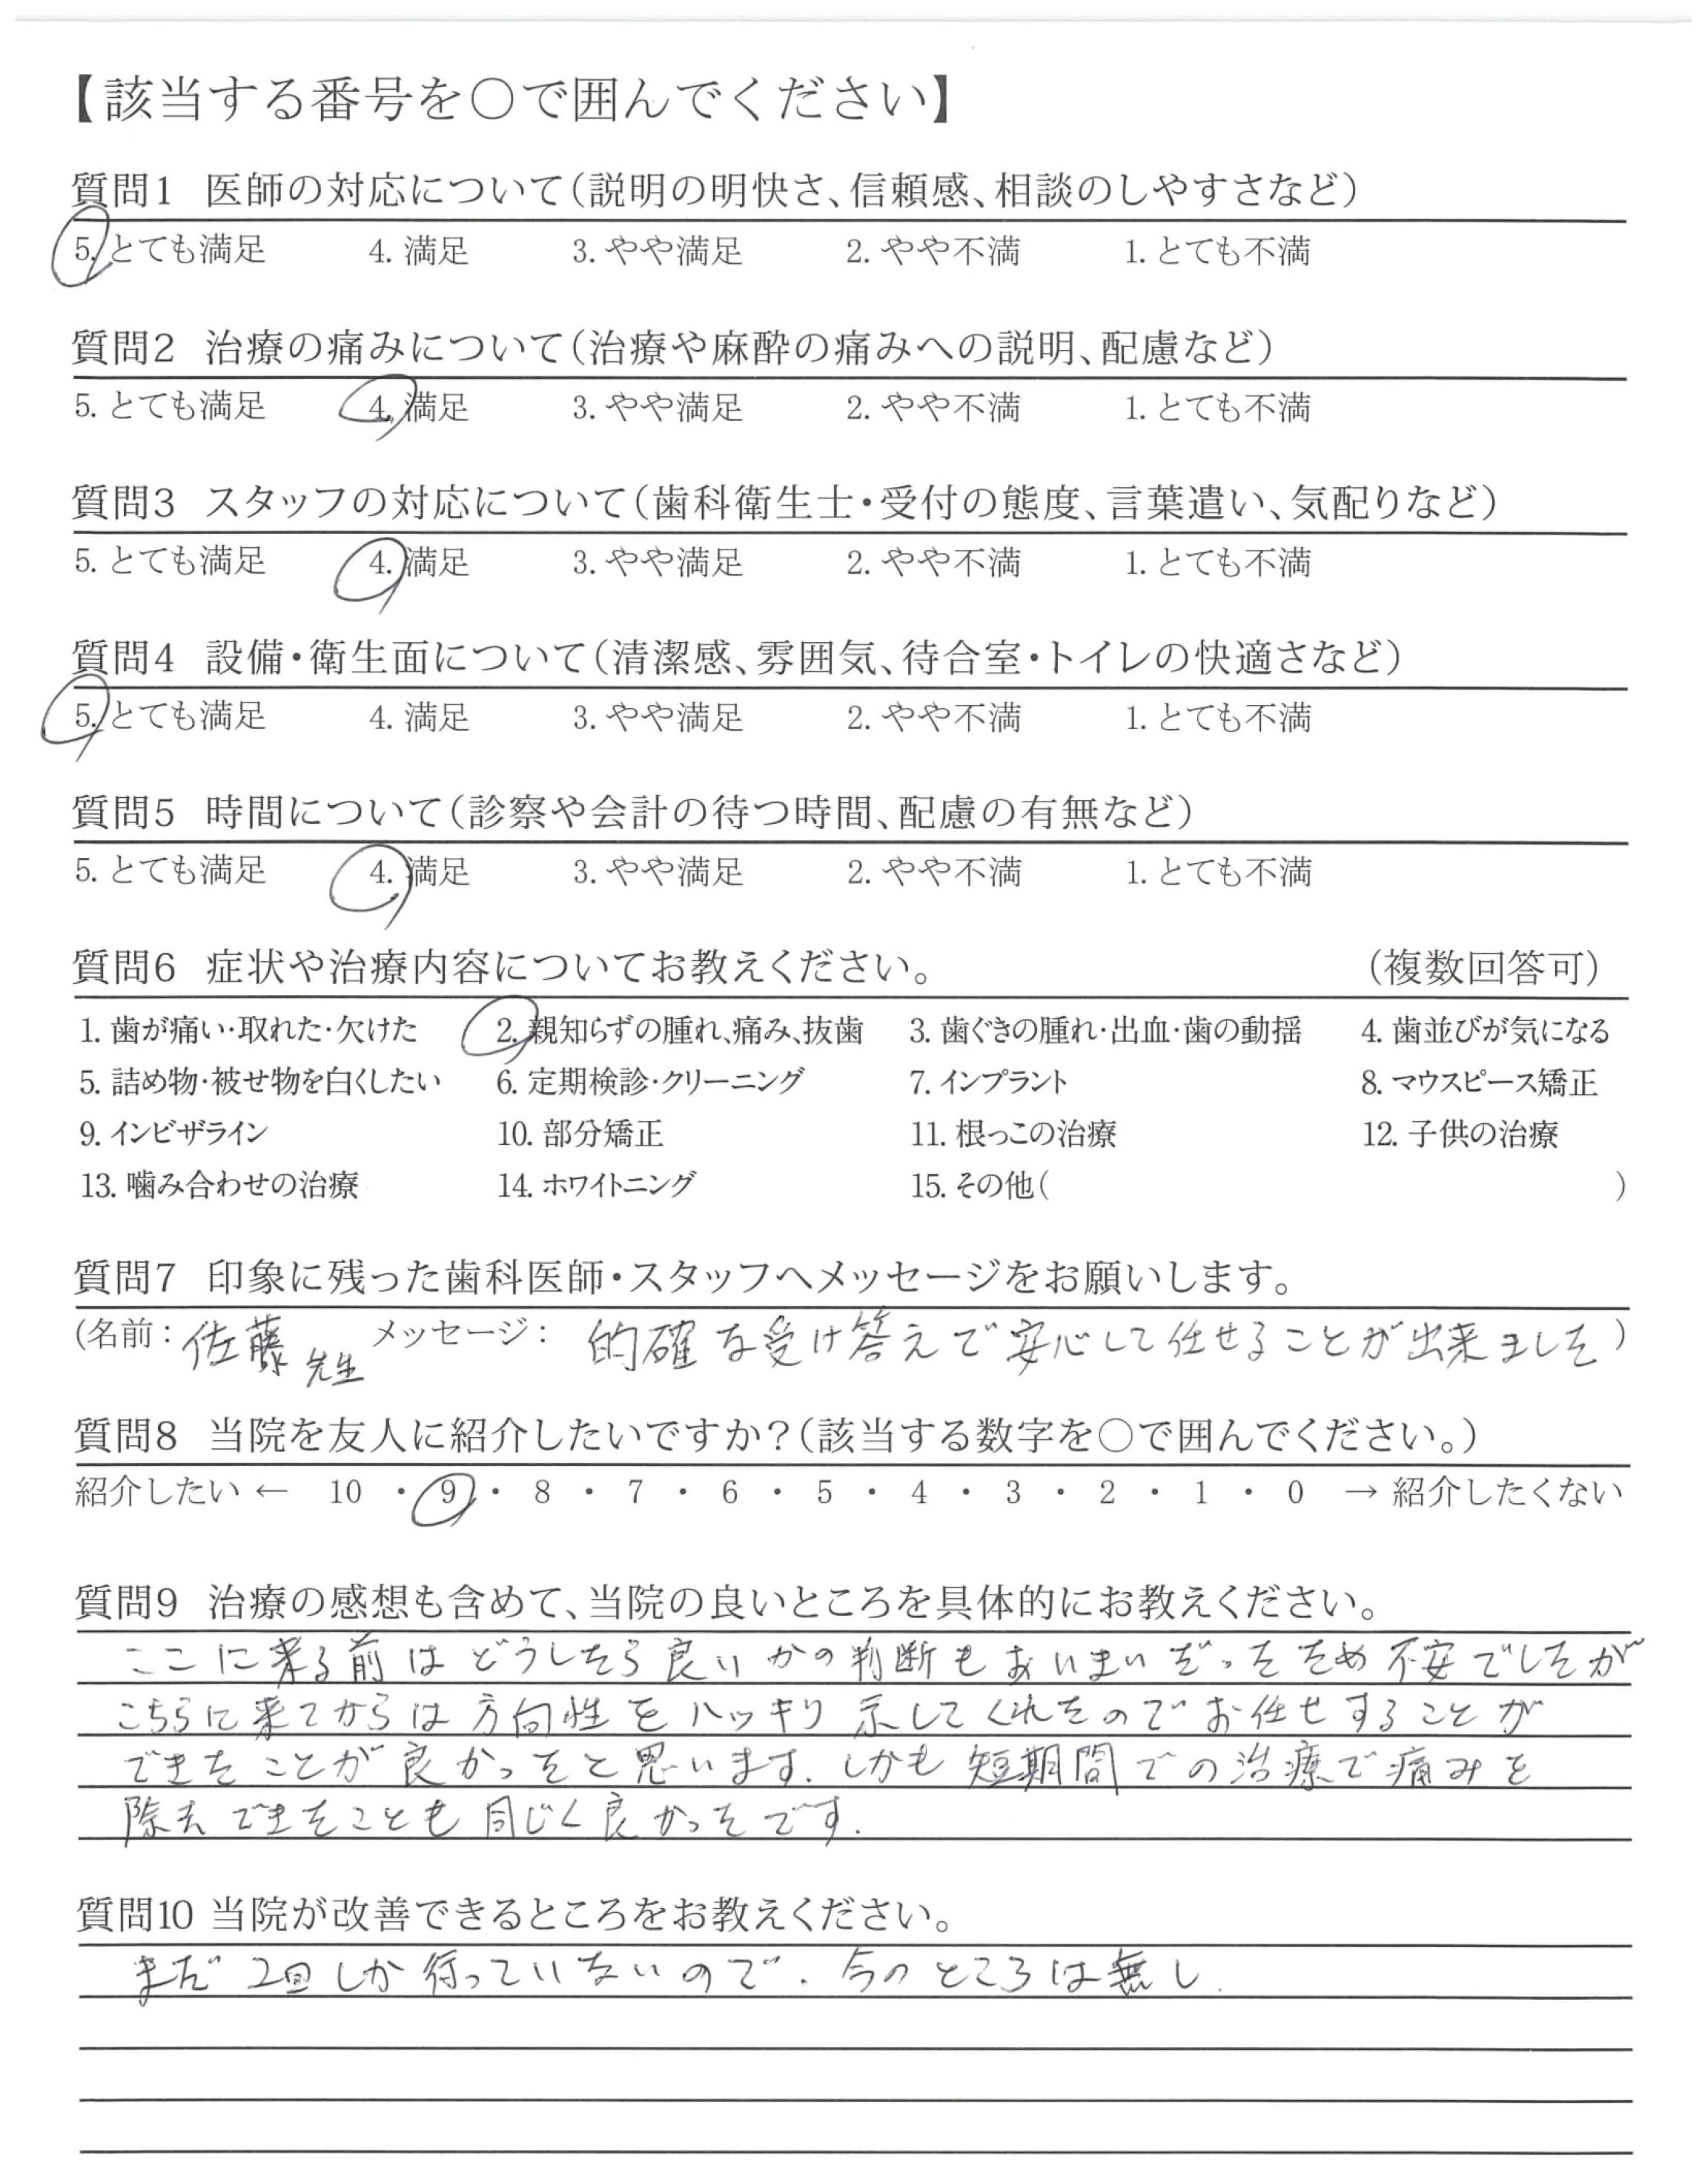 【該当する番号を○で囲んでください】
質問1 医師の対応について(説明の明快さ、信頼感、相談のしやすさなど)
5. とても満足 4. 満足 3. やや満足 2. やや不満 1. とても不満
質問2 治療の痛みについて(治療や麻酔の痛みへの説明、配慮など)
5. とても満足 4. 満足 3. やや満足 2. やや不満 1. とても不満
質問3 スタッフの対応について(歯科衛生士・受付の態度、言葉遣い、気配りなど)
5. とても満足 4. 満足 3. やや満足 2. やや不満 1. とても不満
質問4 設備・衛生面について(清潔感、雰囲気、待合室・トイレの快適さなど)
5. とても満足 4. 満足 3. やや満足 2. やや不満 1. とても不満
質問5 時間について(診察や会計の待つ時間、配慮の有無など)
5. とても満足 4. 満足 3. やや満足 2. やや不満 1. とても不満
質問6 症状や治療内容についてお教えください。 (複数回答可)
1. 歯が痛い・取れた・欠けた 2. 親知らずの腫れ、痛み、抜歯 3. 歯ぐきの腫れ・出血・歯の動揺 4. 歯並びが気になる
5. 詰め物・被せ物を白くしたい 6. 定期検診・クリーニング 7. インプラント 8. マウスピース矯正
9. インビザライン 10. 部分矯正 11. 根っこの治療 12. 子供の治療
13. 噛み合わせの治療 14. ホワイトニング 15. その他( )
質問7 印象に残った歯科医師・スタッフへメッセージをお願いします。
(名前: 佐藤先生 メッセージ: 的確な受け答えで安心して任せることが出来ました)
質問8 当院を友人に紹介したいですか?(該当する数字を○で囲んでください。)
紹介したい ← 10 ・ 9 ・ 8 ・ 7 ・ 6 ・ 5 ・ 4 ・ 3 ・ 2 ・ 1 ・ 0 → 紹介したくない
質問9 治療の感想も含めて、当院の良いところを具体的にお教えください。
ここに来る前はどうしたら良いかの判断もあいまいだったため不安でしたが
こちらに来てからは方向性をハッキリ示してくれたのでお任せすることが
できたことが良かったと思います。しかも短期間での治療で痛みを
除去できたことも同じく良かったです。
質問10 当院が改善できるところをお教えください。
まだ2回しか行っていないので、今のところは無し。